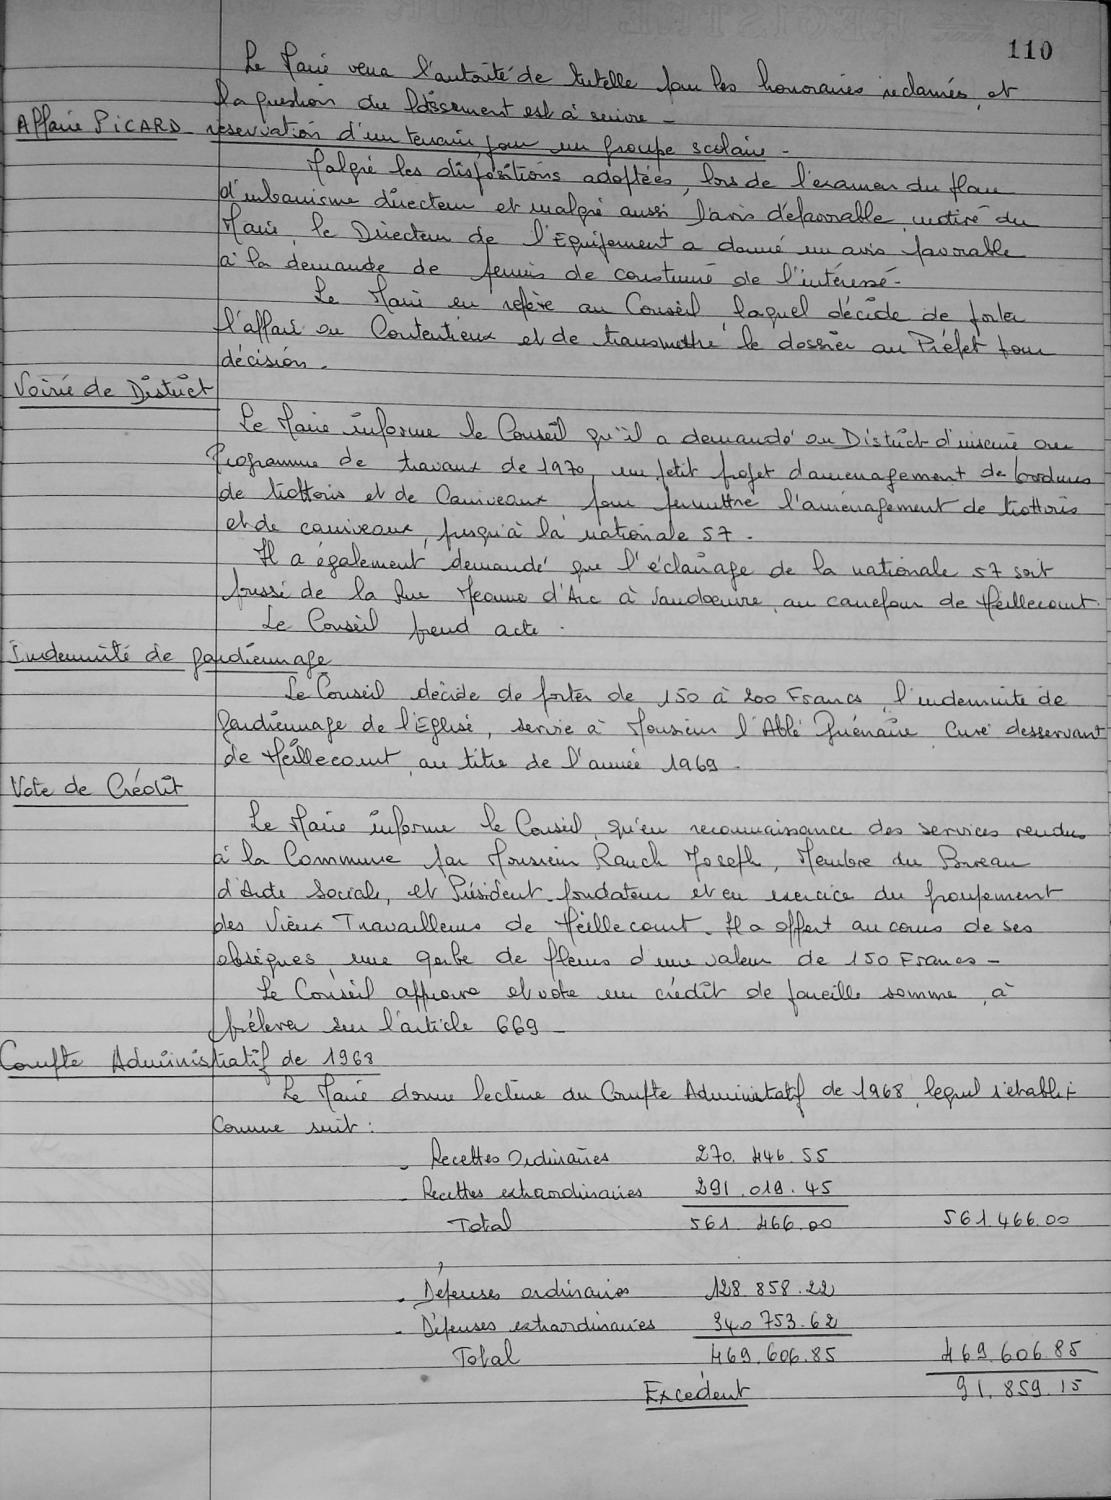 110
Le Maire verra l'autorité de tutelle pour les honoraires réclamés, et
la question du lotissement est à suivre -
Affaire PICARD - réservation d'un terrain pour un groupe scolaire -
Malgré les dispositions adoptées, lors de l'examen du plan
d'urbanisme directeur et malgré aussi l'avis défavorable motivé du
Maire, le Directeur de l'Equipement a donné un avis favorable
à la demande de permis de construire de l'intéressé -
Le Maire en réfère au Conseil lequel décide de porter
l'affaire au Contentieux et de transmettre le dossier au Préfet pour
décision.
Voirie de District
Le Maire informe le Conseil qu'il a demandé au District d'inscrire au
Programme de travaux de 1970, un petit projet d'aménagement de bordures
de trottoirs et de Caniveaux pour permettre l'aménagement de trottoirs
et de caniveaux, jusqu'à la nationale 57.
Il a également demandé que l'éclairage de la nationale 57 soit
poussé de la Rue Jeanne d'Arc à Vandoeuvre, au carrefour de Heillecourt.
Le Conseil prend acte.
Indemnité de gardiennage
Le Conseil décide de porter de 150 à 200 Francs, l'indemnité de
Gardiennage de l'Eglise, servie à Monsieur l'Abbé Curé desservant
de Heillecourt, au titre de l'année 1969.
Vote de Crédit
Le Maire informe le Conseil, qu'en reconnaissance des services rendus
à la Commune par Monsieur Rauch Joseph, Membre du Bureau
d'Aide Sociale, et Président fondateur et en exercice du groupement
des Vieux Travailleurs de Heillecourt. Il a offert au cours de ses
obsèques, une gerbe de fleurs d'une valeur de 150 Francs -
Le Conseil approuve et vote un crédit de pareille somme, à
prélever sur l'article 669 -
Compte Administratif de 1968
Le Maire donne lecture du Compte Administratif de 1968, lequel s'établit
comme suit :
- Recettes Ordinaires 270.446.55
- Recettes extraordinaires 291.019.45
Total 561.466.00 561.466.00
- Dépenses ordinaires 128.858.22
- Dépenses extraordinaires 340 753.62
Total 469.606.85 469.606.85
Excédent 91.859.15